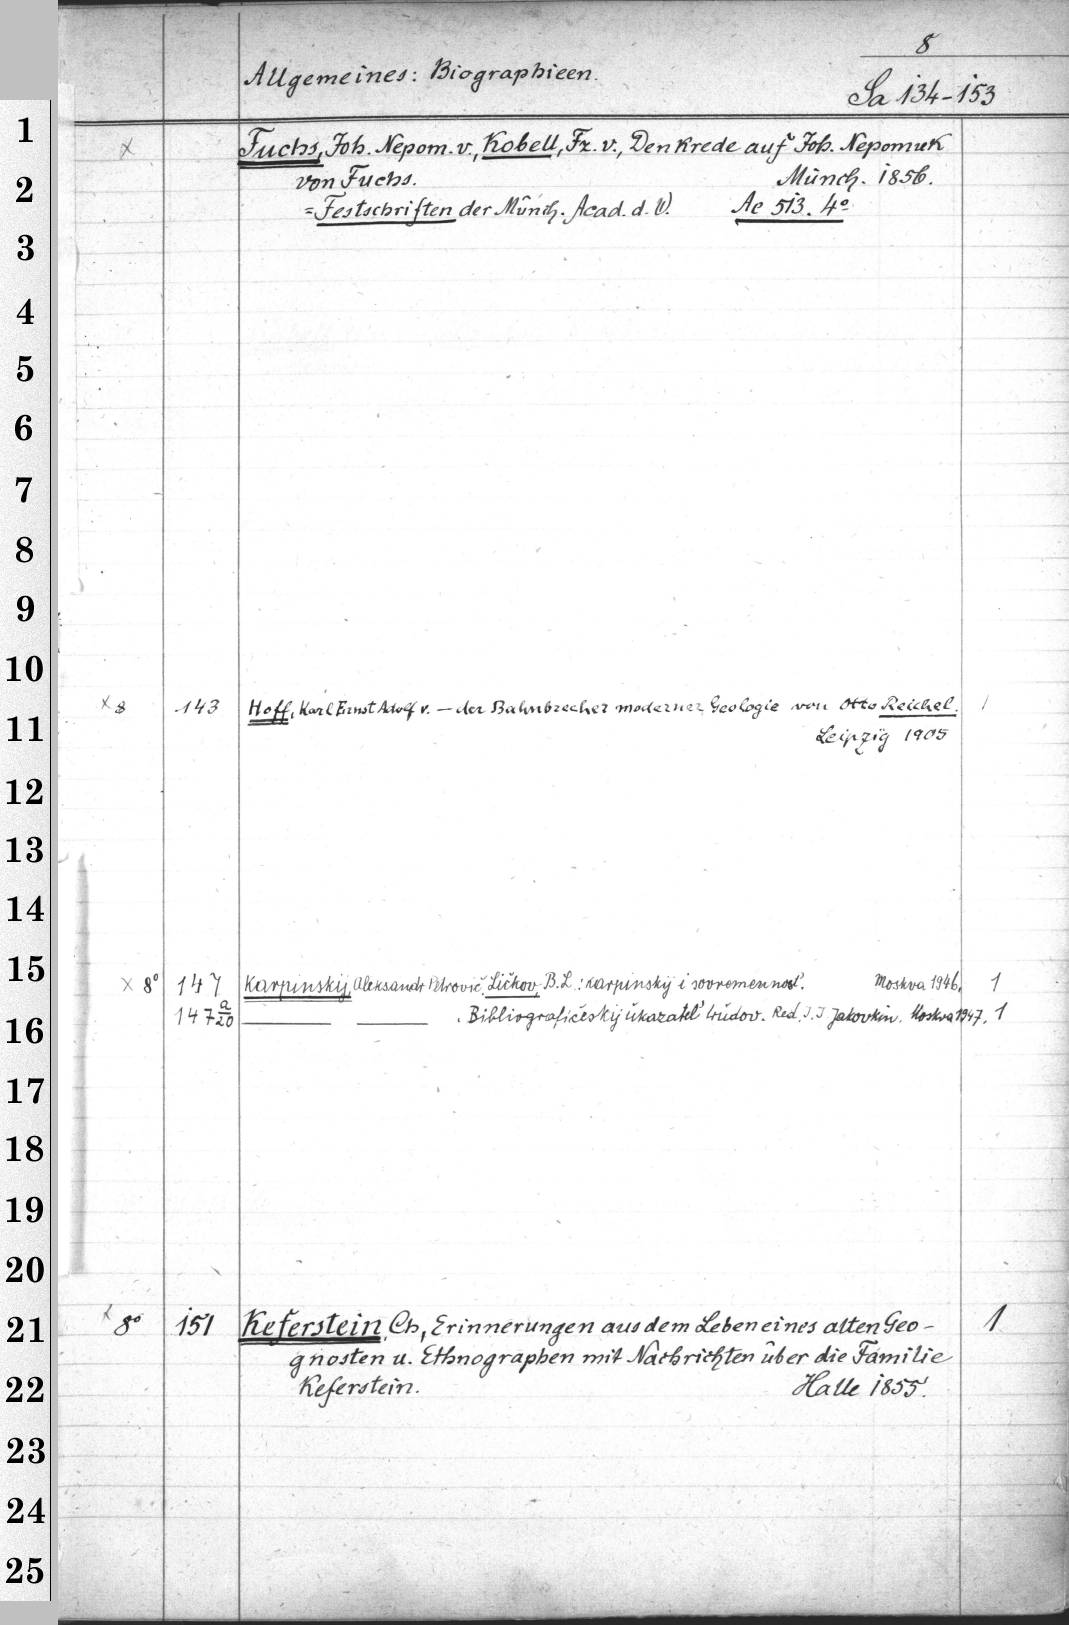 8
Allgemeines: Biographieen.
Sa 134-153
1
x Fuchs, Joh. Nepom. v., Kobell, Fz. v., Denkrede auf Joh. Nepomuk
2
von Fuchs. Münch. 1856.
= Festschriften der Münch. Acad. d. W. Ae 513. 4º
3
4
5
6
7
8
9
10
x 8 143 Hoff, Karl Ernst Adolf v. — der Bahnbrecher moderner Geologie von Otto Reichel. 1
11
Leipzig 1905
12
13
14
15
x 8º 147 Karpinskij, Aleksandr Petrovič. Ličkov, B. L.: Karpinskij i sovremennost'. Moskva 1946. 1
16
147 a/20 — — . Bibliografičeskij ukazatel' trudov. Red. I. I. Jakovkin. Moskva 1947. 1
17
18
19
20
21
x 8º 151 Keferstein, Ch, Erinnerungen aus dem Leben eines alten Geo- 1
gnosten u. Ethnographen mit Nachrichten über die Familie
22
Keferstein. Halle 1855.
23
24
25